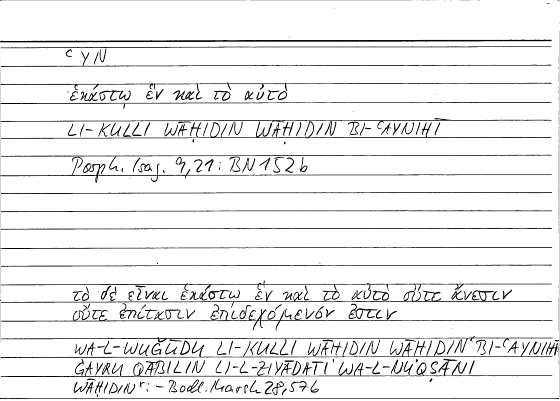 ʿYN
ἑκάστῳ ἓν καὶ τὸ αὐτὸ
LI-KULLI WĀḤIDIN WĀḤIDIN BI-ʿAYNIHĪ
Porph. Isag. 9,21: BN 152b
τὸ δὲ εἶναι ἑκάστῳ ἓν καὶ τὸ αὐτὸ οὔτε ἄνεσιν
οὔτε ἐπίτασιν ἐπιδεχόμενόν ἐστιν
WA-L-WUǦŪDU LI-KULLI WĀḤIDIN WĀḤIDIN⸌ BI-ʿAYNIHĪ
ĠAYRU QĀBILIN LI-L-ZIYĀDATI WA-L-NUQṢĀNI
WĀḤIDIN⸍: – Bodl. Marsh 28,57b